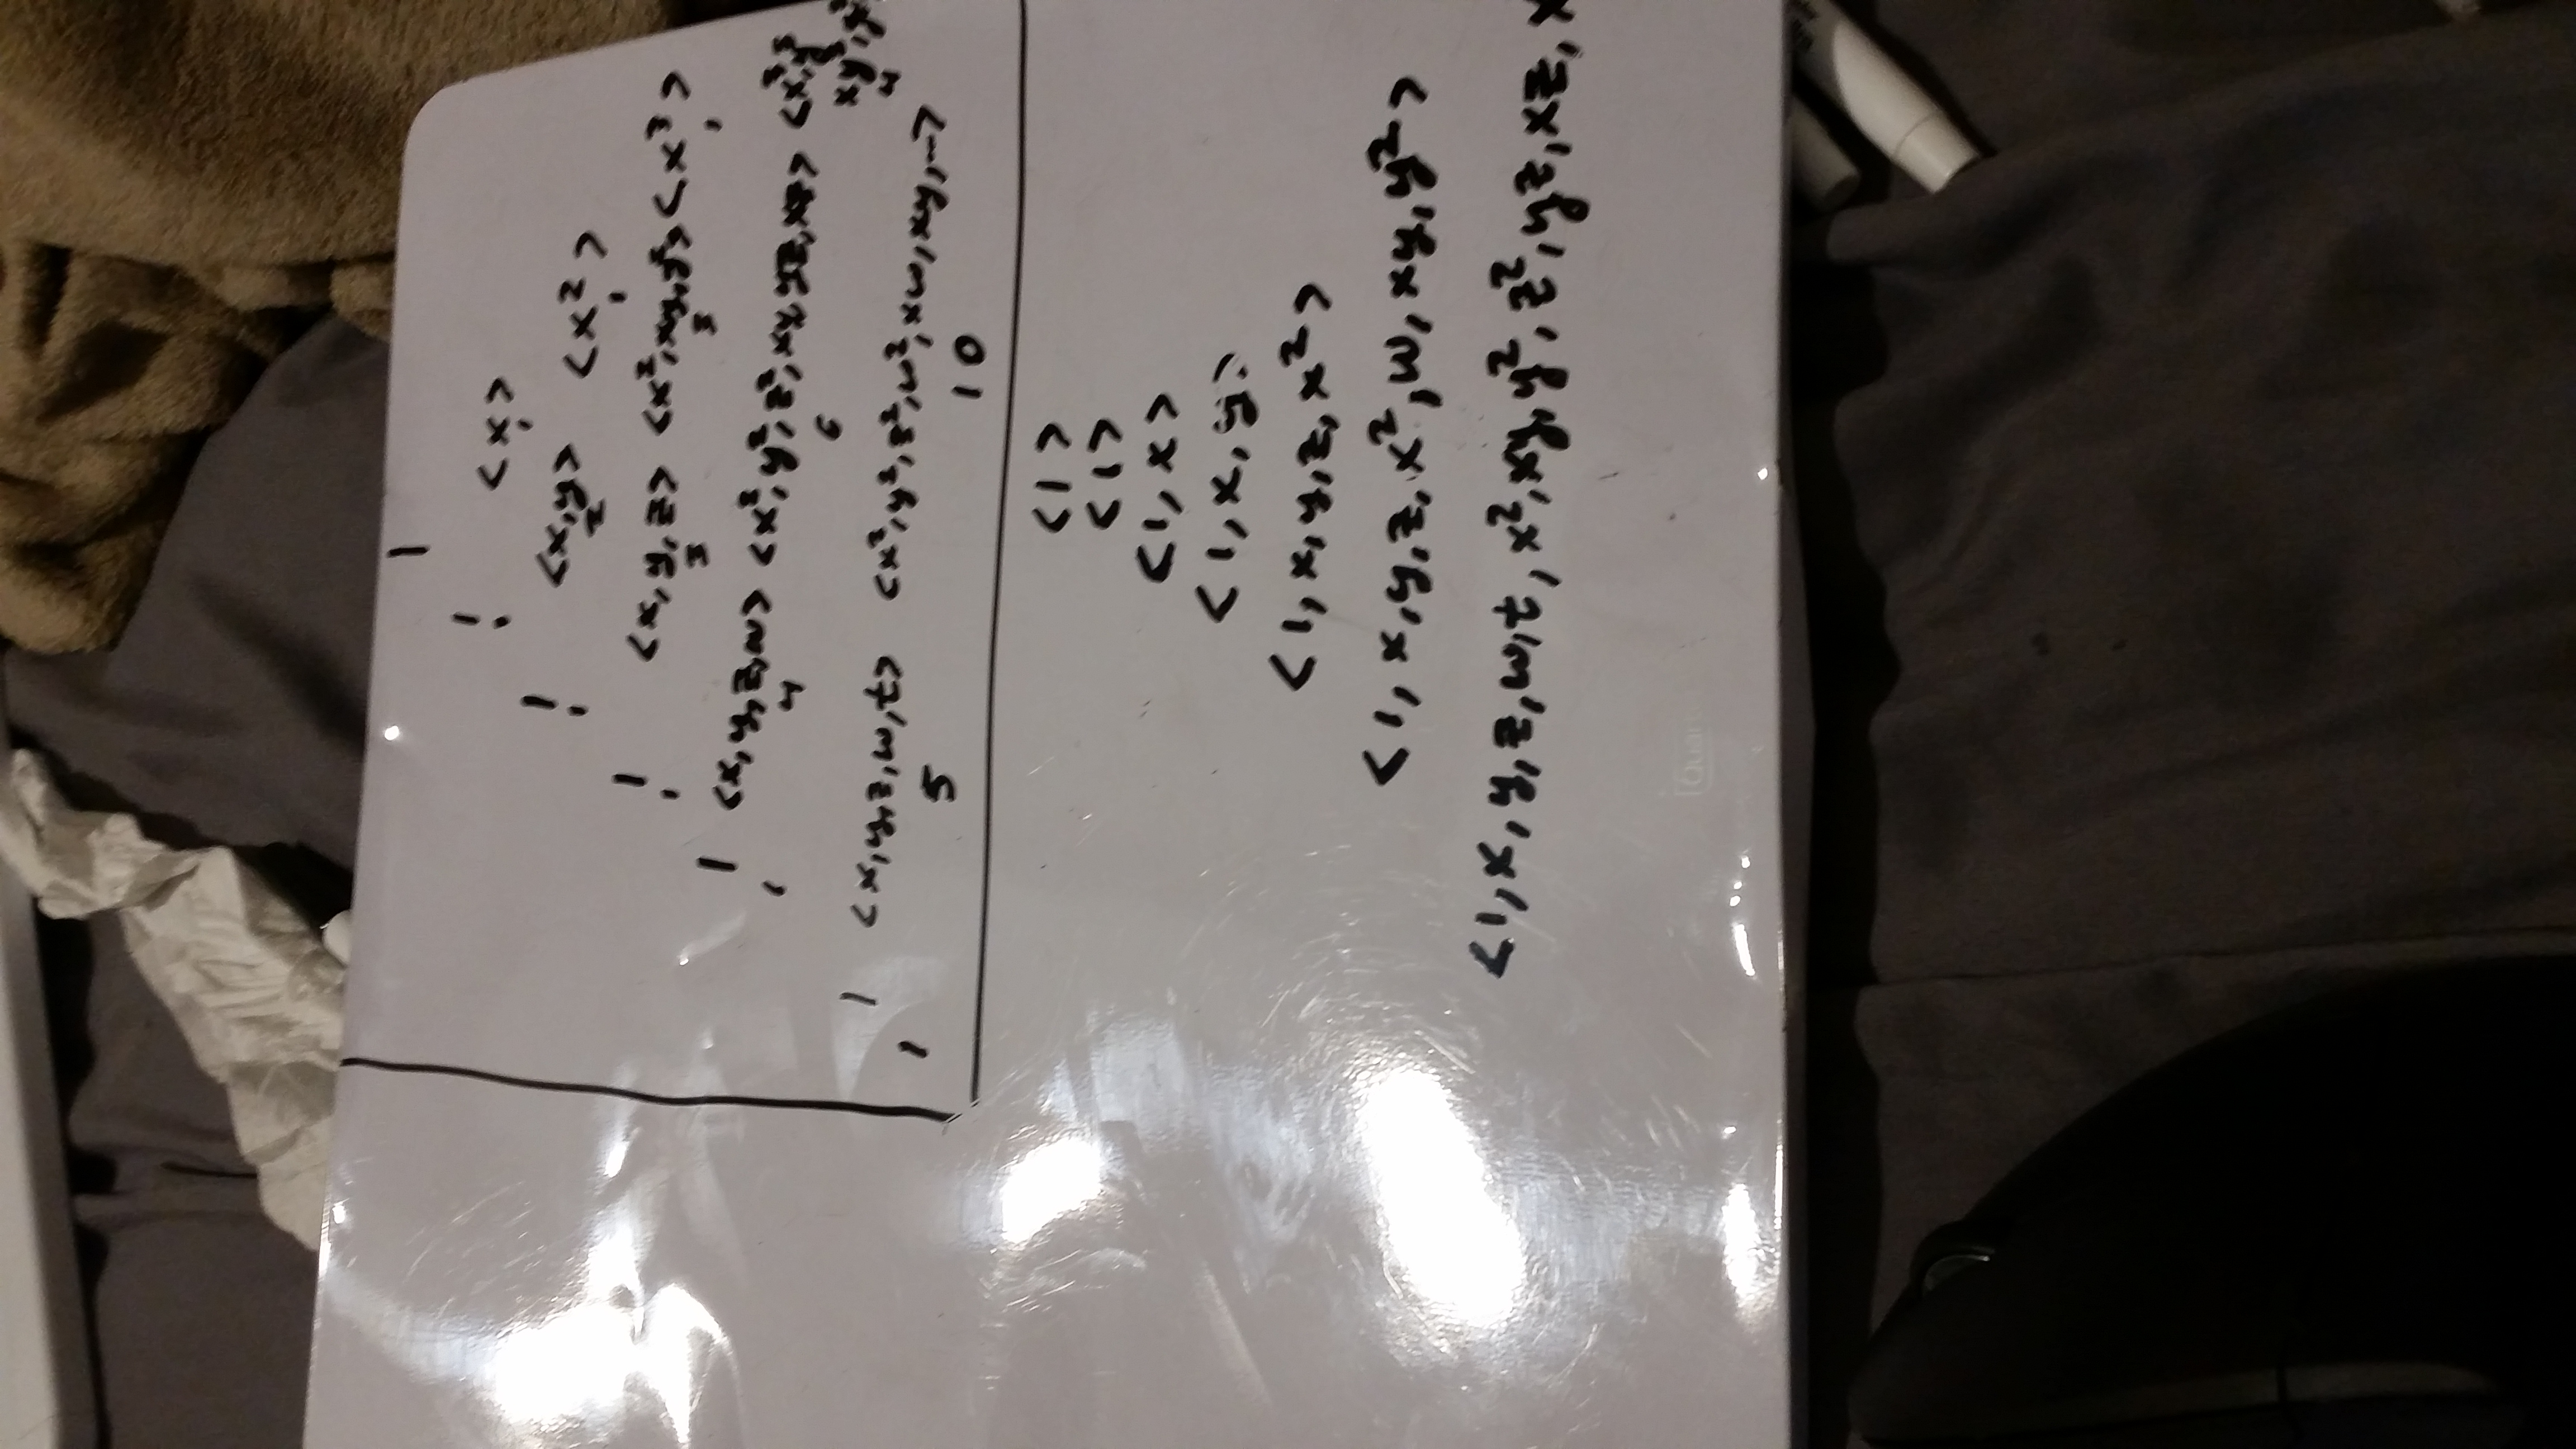 1
1 <x>
1 1
1 <x,y> <x²>
1 2 1
1 <x,y,z> <x²,xy,y²> <x³>
1 3 3 1
1 <x,y,z,w> <x²,y²,z²,xy,yz,xz> <x³,y³
xy³,
1 4 6 4
1 <x,y,z,w,t> <x²,y²,z²,w²,xw,xy,...>
1 5 10
<1>
<1>
<1,x>
<1,x,y>
<1,x,y,z,x²>
<1,x,y,z,x²,w,xy,y²>
<1,x,y,z,w,t,x²,xy,y²,z²,yz,xz,x
Quart